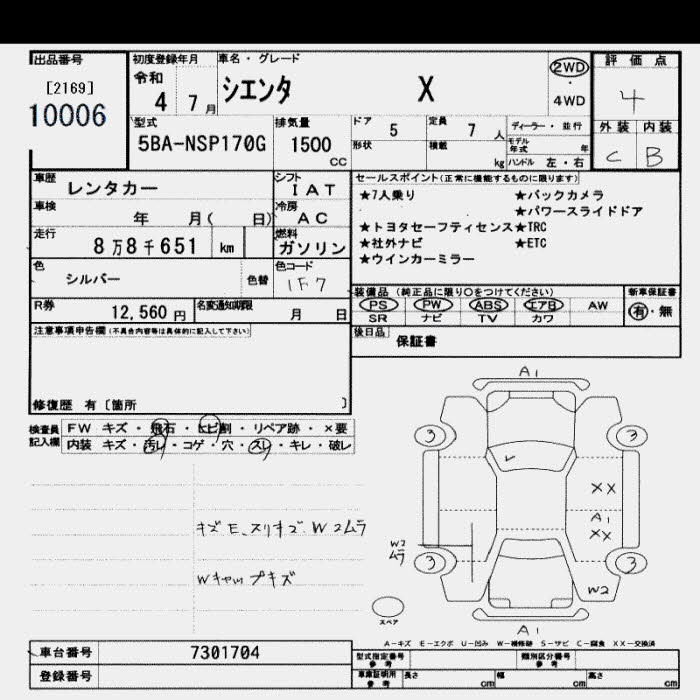 出品番号 初度登録年月 車名・グレード 評価点
[2169] 令和 シエンタ X 2WD 4WD 4
10006 4 7月
型式 排気量 ドア 5 定員 7人 ディーラー・並行 外装 内装
5BA-NSP170G 1500 CC 形状 積載 kg モデル年式 年 ハンドル 左・右 C B
車歴 レンタカー シフト IAT セールスポイント(正常に機能するものに限ります)
車検 年 月( 日) 冷房 AC
★7人乗り ★バックカメラ
★パワースライドドア
★トヨタセーフティセンス★TRC
走行 8万8千651 km 燃料 ガソリン
★社外ナビ ★ETC
★ウインカーミラー
色 シルバー 色替 色コード 1F7
装備品(純正品に限り○をつけてください) 新車保証書
R券 12,560円 名変通知期限 月 日
PS PW ABS エアB AW 有・無
SR ナビ TV カワ
注意事項申告欄(不具合内容等は具体的に記入して下さい)
後日品 保証書
修復歴 有〔箇所 〕
検査員記入欄 FW キズ・飛石・ヒビ割・リペア跡・×要
内装 キズ・汚レ・コゲ・穴・スレ・キレ・破レ
A1
3 3
XX
A1
XX
キズE、スリキズ、W2ムラ
W2
ムラ
3 3
Wキャップキズ
W2
スペア
A1
A-キズ E-エクボ U-凹み W-補修跡 S-サビ C-腐食 XX-交換済
車台番号 7301704 型式指定番号 参考 類別区分番号 参考
登録番号 車庫証明用 参考 長さ cm 幅 cm 高さ cm